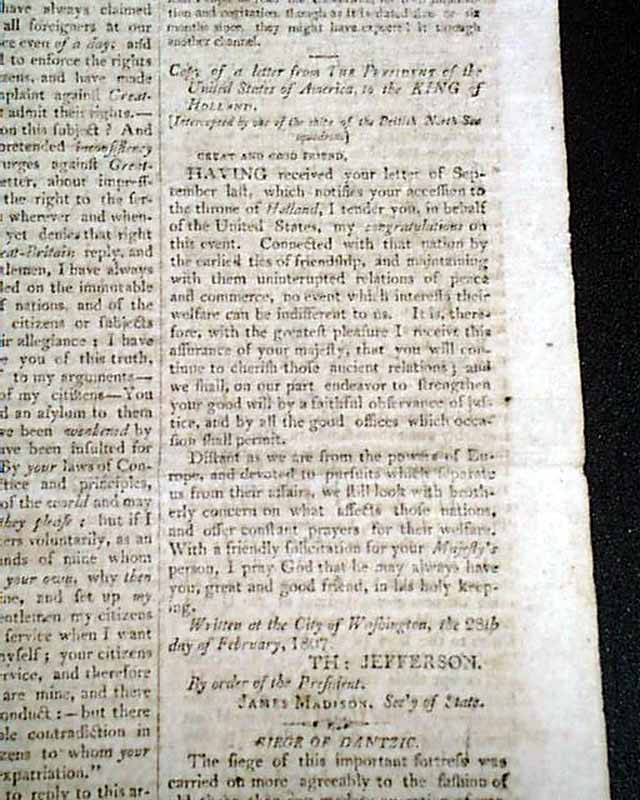 have always claimed
all foreigners at our
even of a day; and
to enforce the rights
and have made
against Great-
admit their rights.—
on this subject? And
pretended inconsistency
urges against Great-
about
the right to the
wherever and when-
yet denies that right
reply, and
I have always
on the immutable
nations, and of the
citizens or subjects
allegiance: I have
you of this truth,
to my arguments—
of my citizens—You
an asylum to them
been weakened by
have been insulted for
By your laws of Con-
and principles,
of the world and may
they please: but if I
voluntarily, as an
of mine whom
your own, why then
and set up my
my citizens
service when I want
your citizens
and therefore
are mine, and there
:—but there
contradiction in
to whom your
expatriation."
to reply to this ar-
tion and cogitation, though as it is dated five or six
months since, they might have expected it through
another channel.
Copy of a letter from THE PRESIDENT of the
United States of America, to the KING of
HOLLAND.
[Intercepted by one of the ships of the British North Sea
squadron]
GREAT AND GOOD FRIEND,
HAVING received your letter of Sep-
tember laſt, which notifies your acceſſion to
the throne of Holland, I tender you, in behalf
of the United States, my congratulations on
this event. Connected with that nation by
the earlieſt ties of friendſhip, and maintaining
with them uninterrupted relations of peace
and commerce, no event which intereſts their
welfare can be indifferent to us. It is, there-
fore, with the greateſt pleaſure I receive this
aſſurance of your majeſty, that you will con-
tinue to cheriſh thoſe ancient relations; and
we ſhall, on our part endeavor to ſtrengthen
your good will by a faithful obſervance of juſ-
tice, and by all the good offices which occa-
ſion ſhall permit.
Diſtant as we are from the powers of Eu-
rope, and devoted to purſuits which ſeparate
us from their affairs, we ſtill look with broth-
erly concern on what affects thoſe nations,
and offer conſtant prayers for their welfare.
With a friendly ſolicitation for your Majeſty's
perſon, I pray God that he may always have
you, great and good friend, in his holy keep-
ing.
Written at the City of Waſhington, the 28th
day of February, 1807.
TH: JEFFERSON.
By order of the Preſident.
JAMES MADISON, Sec'y of State.
SIEGE OF DANTZIC.
The ſiege of this important fortreſs was
carried on more agreeably to the faſhion of